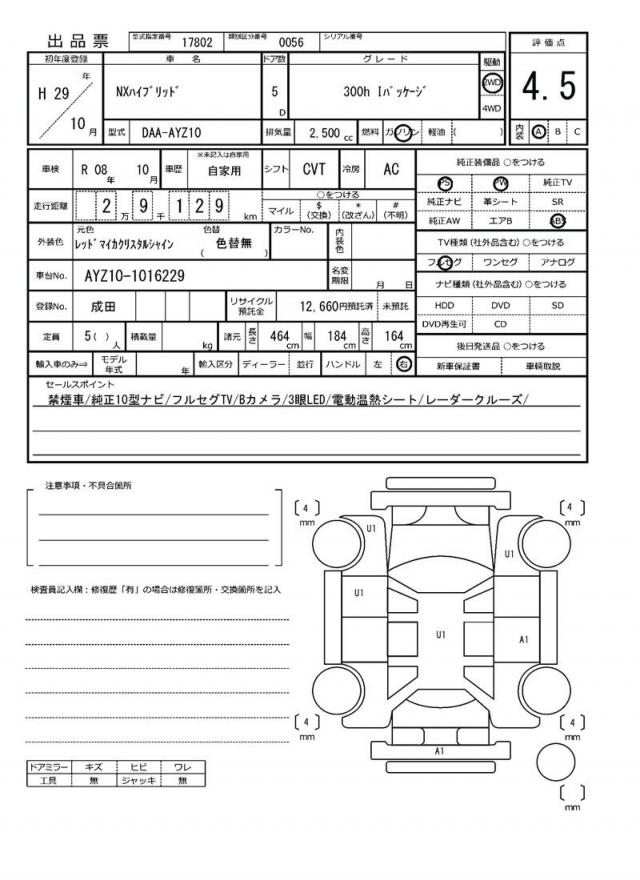 出品票
型式指定番号 17802 類別区分番号 0056 シリアル番号
初年度登録 車名 ドア数 グレード 駆動 評価点
H 29 年 10 月 NXハイブリッド 5 D 300h Iパッケージ 2WD 4WD 4.5
型式 DAA-AYZ10 排気量 2,500 cc 燃料 ガソリン 軽油 ( ) 内装 A B C
車検 R 08 年 10 月 車歴 ※未記入は自家用 自家用 シフト CVT 冷房 AC
純正装備品 ○をつける
PS PW 純正TV
純正ナビ 革シート SR
純正AW エアB ABS
走行距離 2 万 9 千 1 2 9 km
○をつける
マイル $ (交換) * (改ざん) # (不明)
外装色 元色 レッドマイカクリスタルシャイン 色替 ( 色替無 ) カラーNo. 内装色
TV種類 (社外品含む) ○をつける
フルセグ ワンセグ アナログ
車台No. AYZ10-1016229 名変期限 月 日
ナビ種類 (社外品含む) ○をつける
HDD DVD SD
DVD再生可 CD
登録No. 成田 リサイクル預託金 12,660円預託済 未預託
定員 5( ) 人 積載量 kg 諸元 長さ 464 cm 幅 184 cm 高さ 164 cm
後日発送品 ○をつける
新車保証書 車輌取説
輸入車のみ⇒ モデル年式 年 輸入区分 ディーラー 並行 ハンドル 左 右
セールスポイント
禁煙車/純正10型ナビ/フルセグTV/Bカメラ/3眼LED/電動温熱シート/レーダークルーズ/
注意事項・不具合箇所
検査員記入欄：修復歴「有」の場合は修復箇所・交換箇所を記入
ドアミラー キズ ヒビ ワレ
工具 無 ジャッキ 無
4 mm
4 mm
U1
U1
U1
U1
A1
4 mm
4 mm
A1
mm